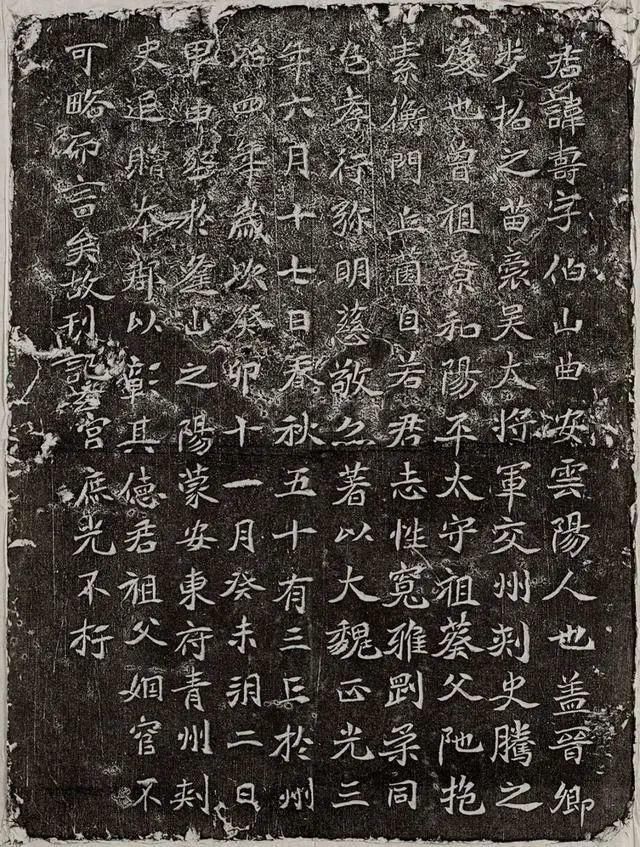 君諱壽字伯山曲安雲陽人也蓋晉卿
步招之苗裔吳大将軍交州刾史騰之
後也曾祖景和陽平太守祖葵父阤抱
素衡門丘薗自若君志性寬雅剛柔同
邑孝行弥明慈敬著以大魏正光三
年六月十七日春秋五十有三亡於州
治四年歲次癸卯十一月癸未朔二日
甲申葬於逢山之陽蒙安東府青州刾
史追贈本郡以彰其德君祖父姻官不
可略而言矣故刊記玄宮庶光不朽